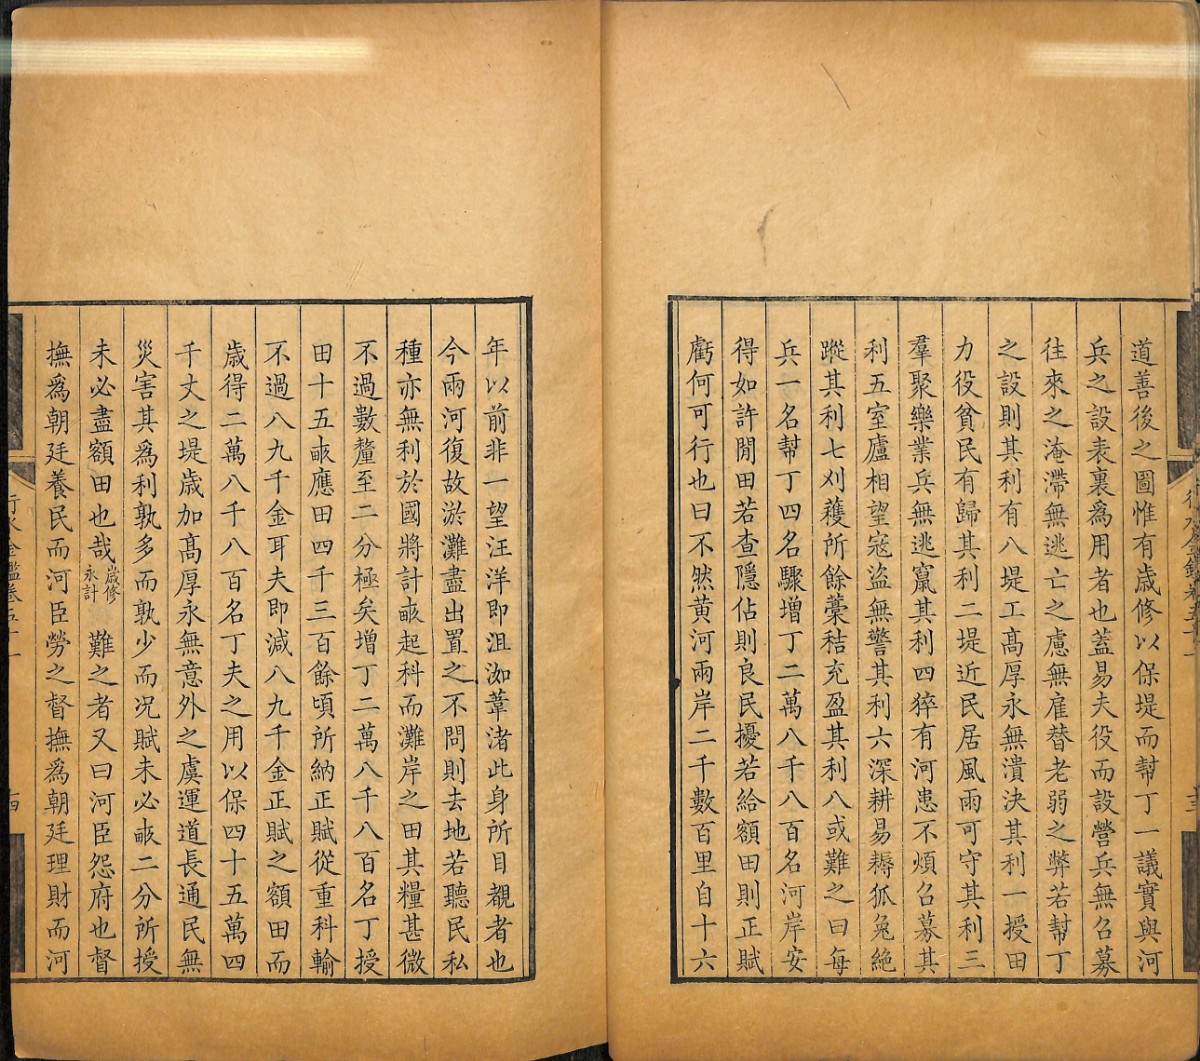 道善後之圖惟有歲修以保堤而幫丁一議實與河
兵之設表裏為用者也蓋易夫役而設營兵無召募
往來之淹滯無逃亡之慮無雇替老弱之弊若幫丁
之設則其利有八堤工高厚永無潰決其利一授田
力役貧民有歸其利二堤近民居風雨可守其利三
羣聚樂業兵無逃竄其利四猝有河患不煩召募其
利五室廬相望寇盜無警其利六深耕易耨狐兔絕
蹤其利七刈穫所餘藁秸充盈其利八或難之曰每
兵一名幫丁四名驟增丁二萬八千八百名河岸安
得如許閒田若查隱佔則良民擾若給額田則正賦
虧何可行也曰不然黃河兩岸二千數百里自十六
年以前非一望汪洋即沮洳葦渚此身所目覩者也
今兩河復故淤灘盡出置之不問則去地若聽民私
種亦無利於國將計畝起科而灘岸之田其糧甚微
不過數釐至二分極矣增丁二萬八千八百名丁授
田十五畝應田四千三百餘頃所納正賦從重科輸
不過八九千金耳夫即減八九千金正賦之額田而
歲得二萬八千八百名丁夫之用以保四十五萬四
千丈之堤歲加高厚永無意外之虞運道長通民無
災害其爲利孰多而孰少而况賦未必畝二分所授
未必盡額田也哉 歲修永計 難之者又曰河臣怨府也督
撫爲朝廷養民而河臣勞之督撫爲朝廷理財而河
行水金鑑卷五十一
四